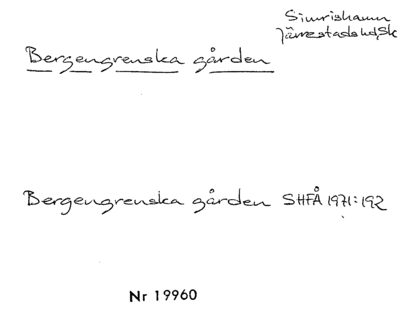 Simrishamn
Järrestads hd, Sk
Bergengrenska gården
Bergengrenska gården SHFÅ 1971:192
Nr 19960